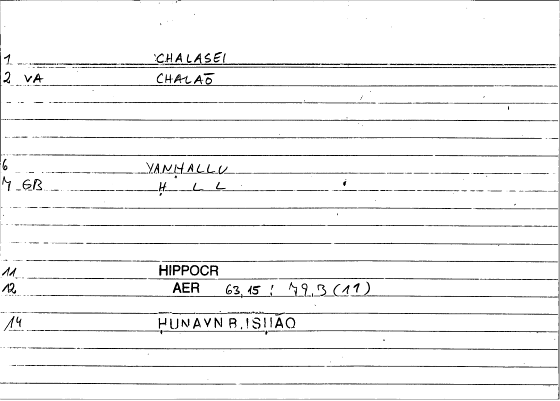 1 CHALASEI
2 VA CHALAŌ
6 YANḤALLU
7 GB Ḥ L L
11 HIPPOCR
12 AER 63,15 : 79,3 (11)
14 ḤUNAYN B. ISḤĀQ